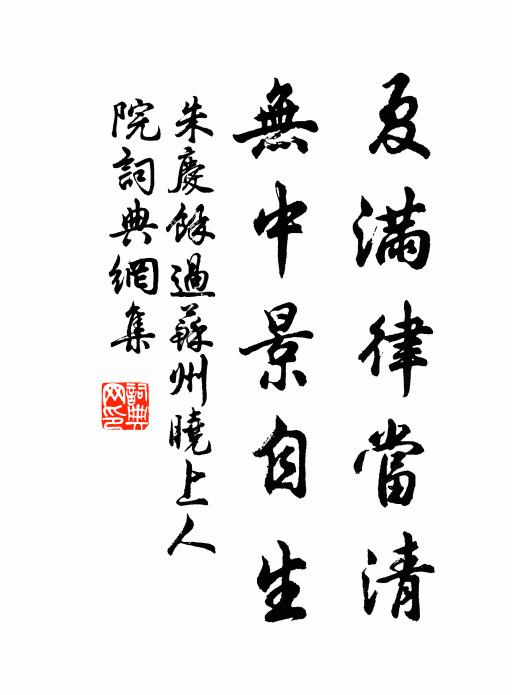 夏滿律當清
無中景自生
朱慶餘過蘇州曉上人
院詞典網集
詞典網印